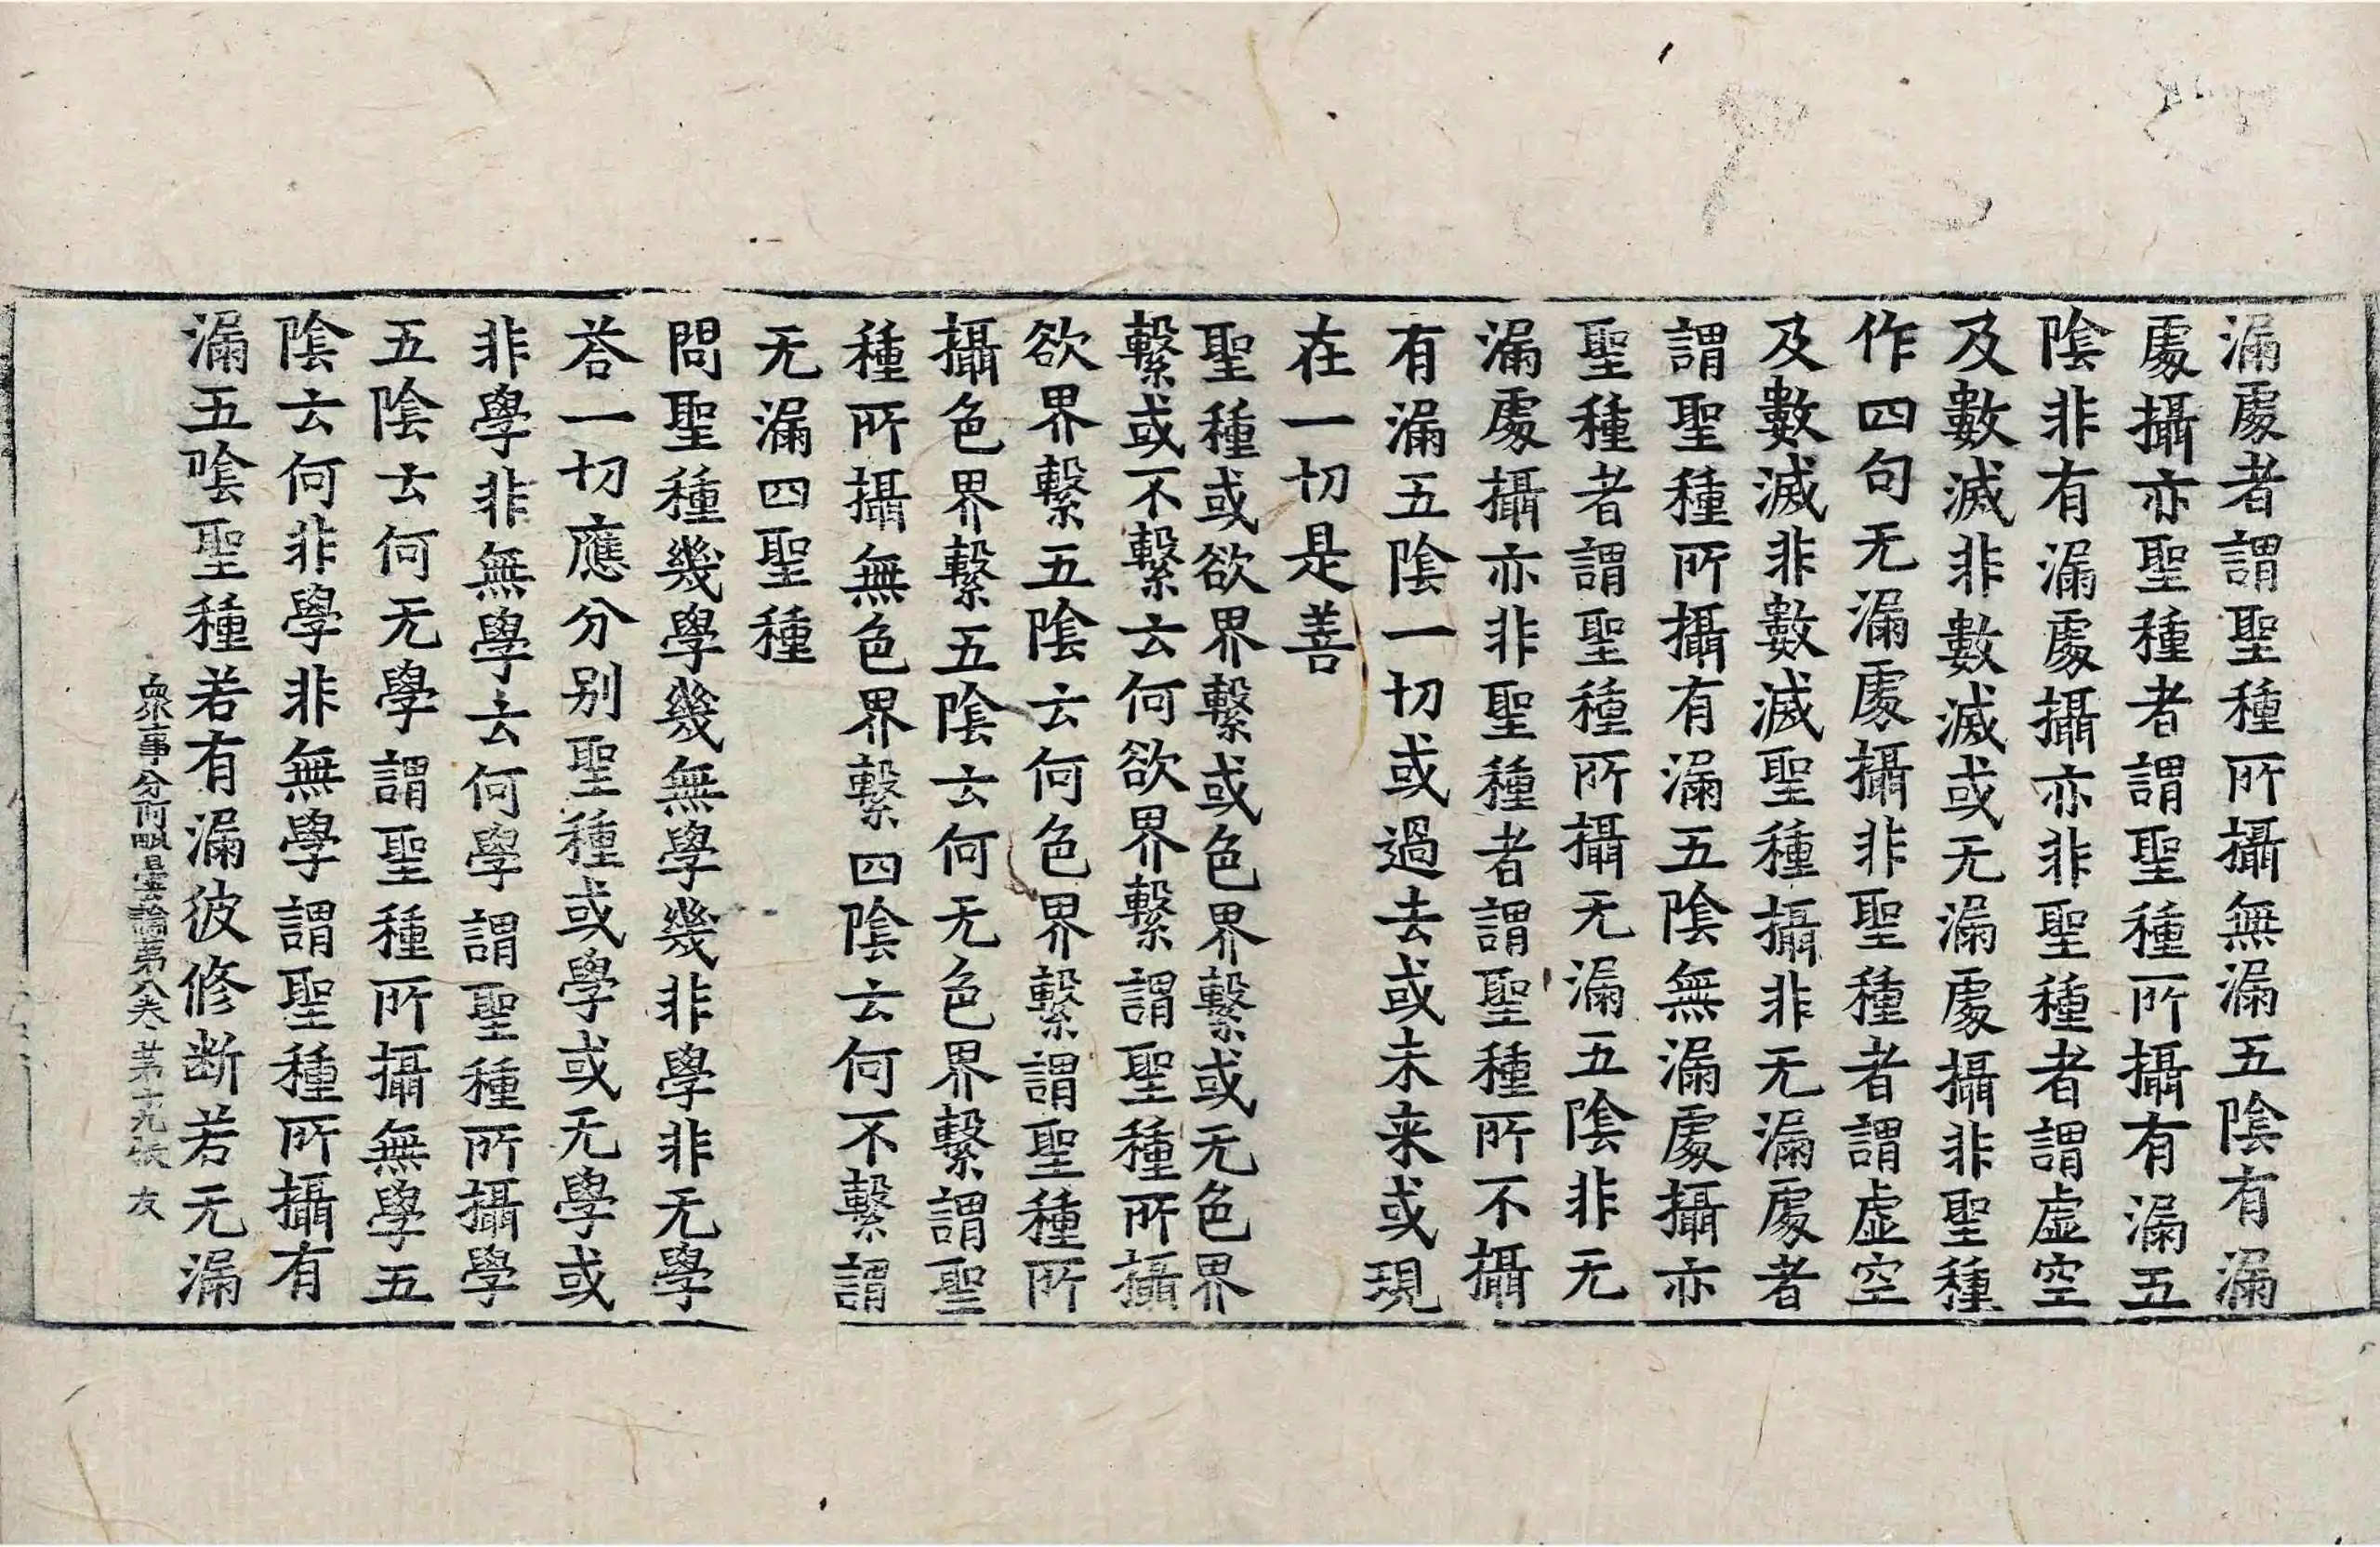 漏處者謂聖種所攝無漏五陰有漏
處攝亦聖種者謂聖種所攝有漏五
陰非有漏處攝亦非聖種者謂虛空
及數滅非數滅或无漏處攝非聖種
作四句无漏處攝非聖種者謂虛空
及數滅非數滅聖種攝非无漏處者
謂聖種所攝有漏五陰無漏處攝亦
聖種者謂聖種所攝无漏五陰非无
漏處攝亦非聖種者謂聖種所不攝
有漏五陰一切或過去或未来或現
在一切是善
聖種或欲界繫或色界繫或无色界
繫或不繫云何欲界繫謂聖種所攝
欲界繫五陰云何色界繫謂聖種所
攝色界繫五陰云何无色界繫謂聖
種所攝無色界繫四陰云何不繫謂
无漏四聖種
問聖種幾學幾無學幾非學非无學
荅一切應分别聖種或學或无學或
非學非無學云何學謂聖種所攝學
五陰云何无學謂聖種所攝無學五
陰云何非學非無學謂聖種所攝有
漏五陰聖種若有漏彼修断若无漏
衆事分阿毗曇論第八卷 第十九張 友